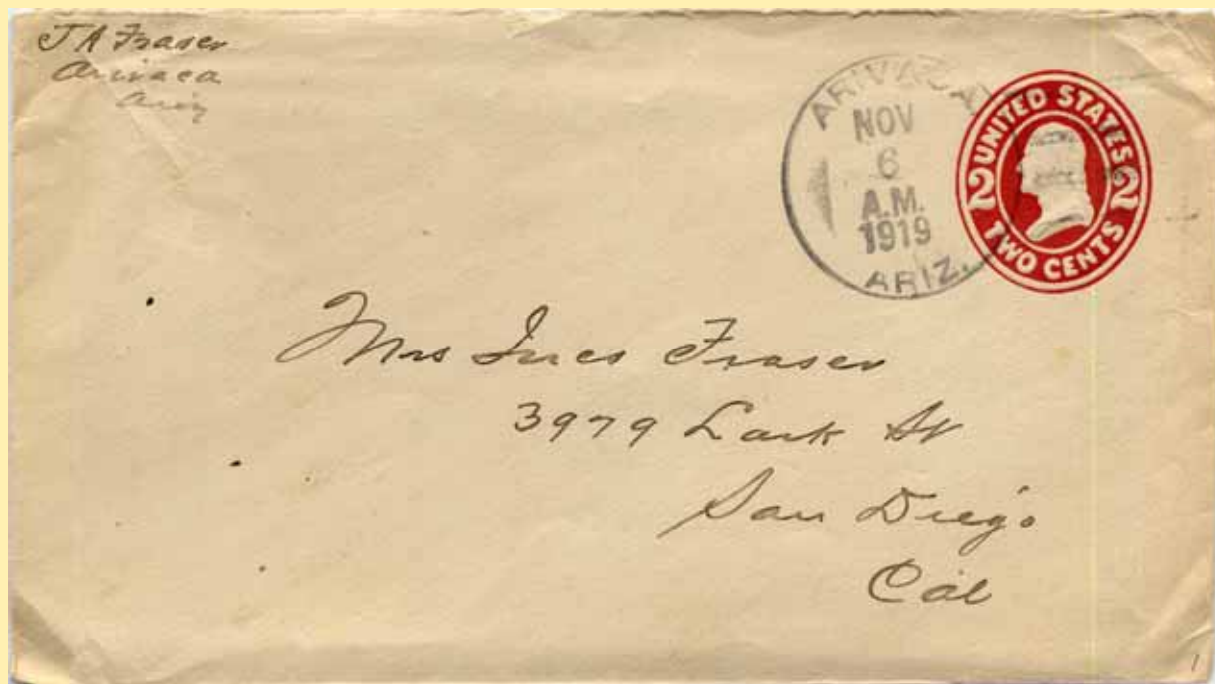 J A Fraser
Arivaca
Ariz
ARIVACA
NOV
6
A.M.
1919
ARIZ.
UNITED STATES
2 2
TWO CENTS
Mrs Ines Fraser
3979 Lark St
San Diego
Cal
1